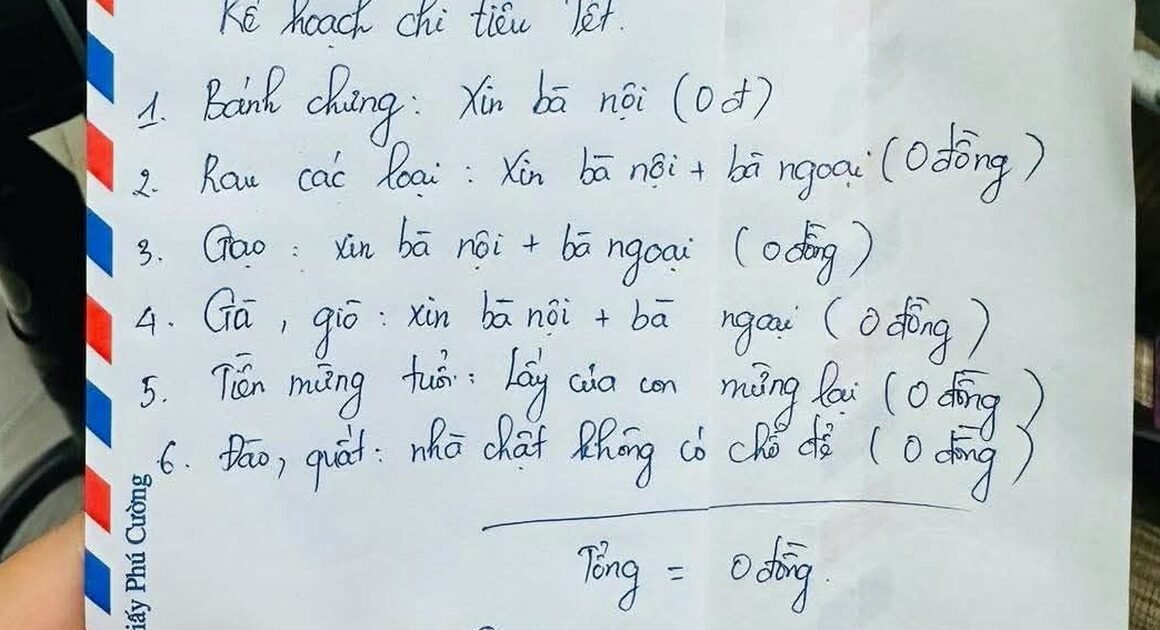 Kế hoạch chi tiêu Tết.
1. Bánh chưng: Xin bà nội (0 đ)
2. Rau các loại: Xin bà nội + bà ngoại (0 đồng)
3. Gạo: xin bà nội + bà ngoại (0 đồng)
4. Gà, giò: xin bà nội + bà ngoại (0 đồng)
5. Tiền mừng tuổi: Lấy của con mừng lại (0 đồng)
6. Đào, quất: nhà chật không có chỗ để (0 đồng)
Tổng = 0 đồng.
iấy Phú Cường